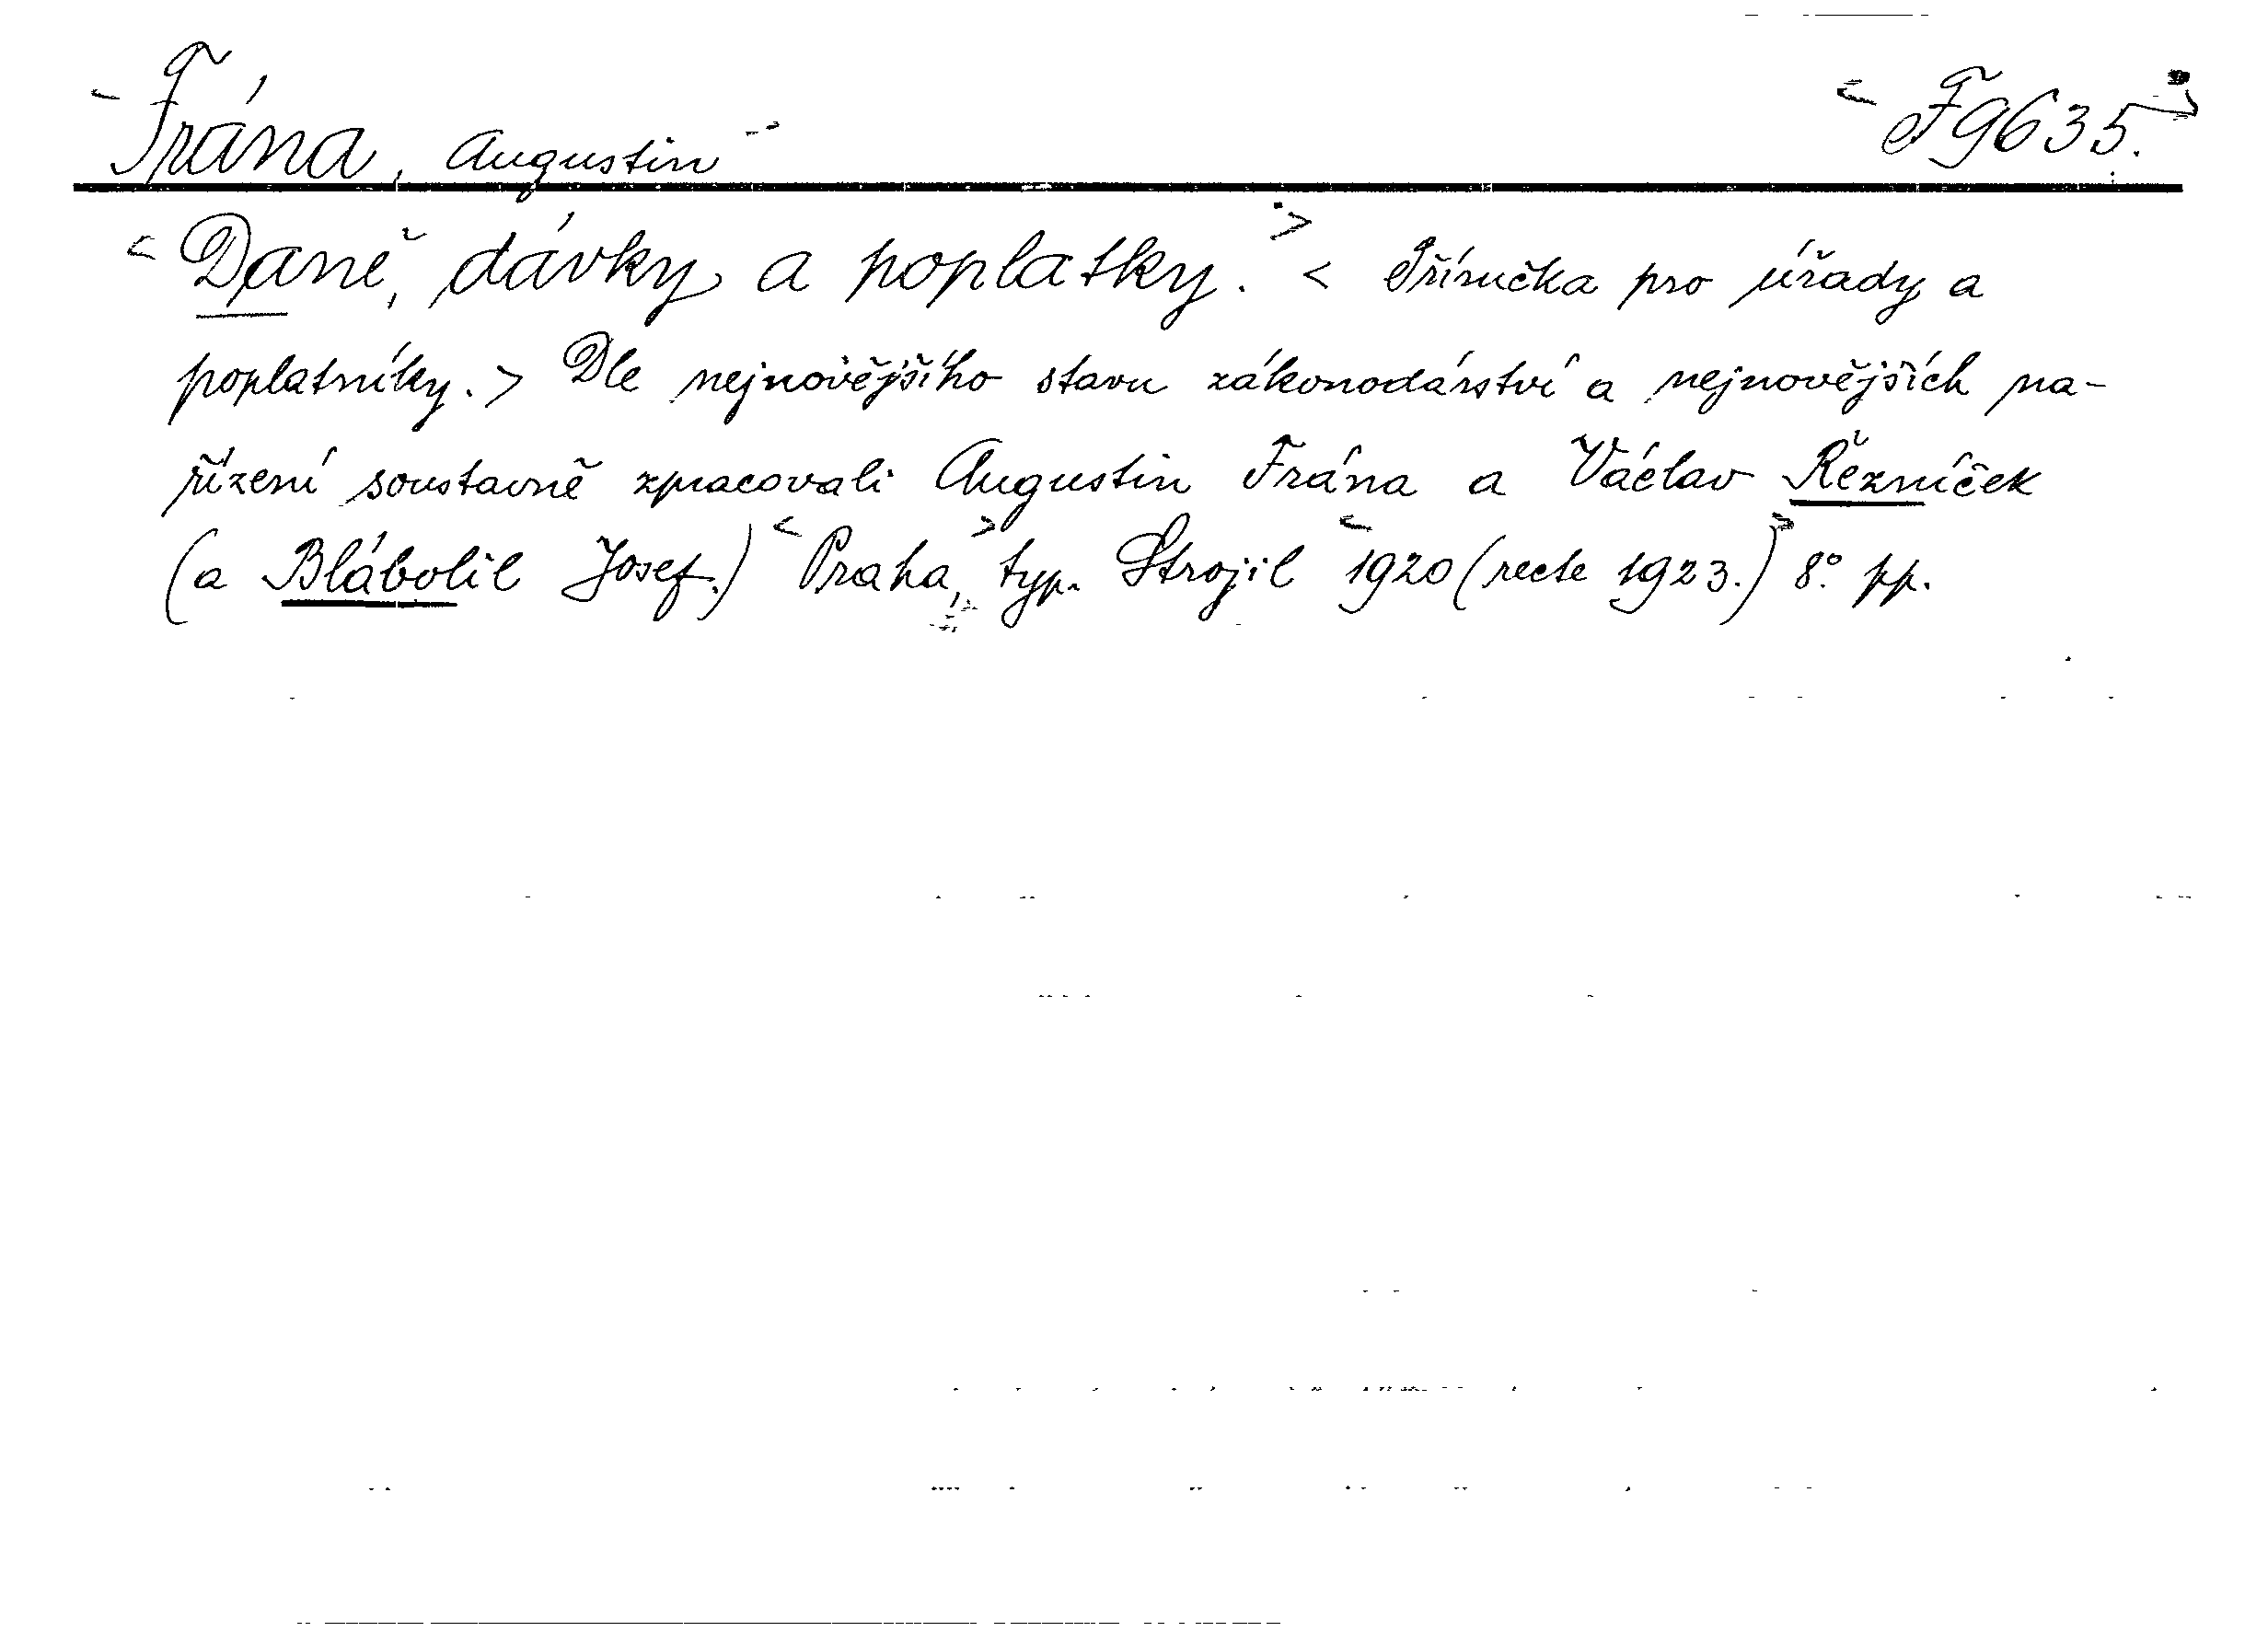 Frána, Augustin <F 9635.>
<Daně, dávky a poplatky.> <Příručka pro úřady a
poplatníky.> Dle nejnovějšího stavu zákonodárství a nejnovějších na-
řízení soustavně zpracovali Augustin Frána a Václav Řezníček
(a Blábolil Josef.) <Praha,> typ. Strojil <1920 (recte 1923.)> 8° pp.